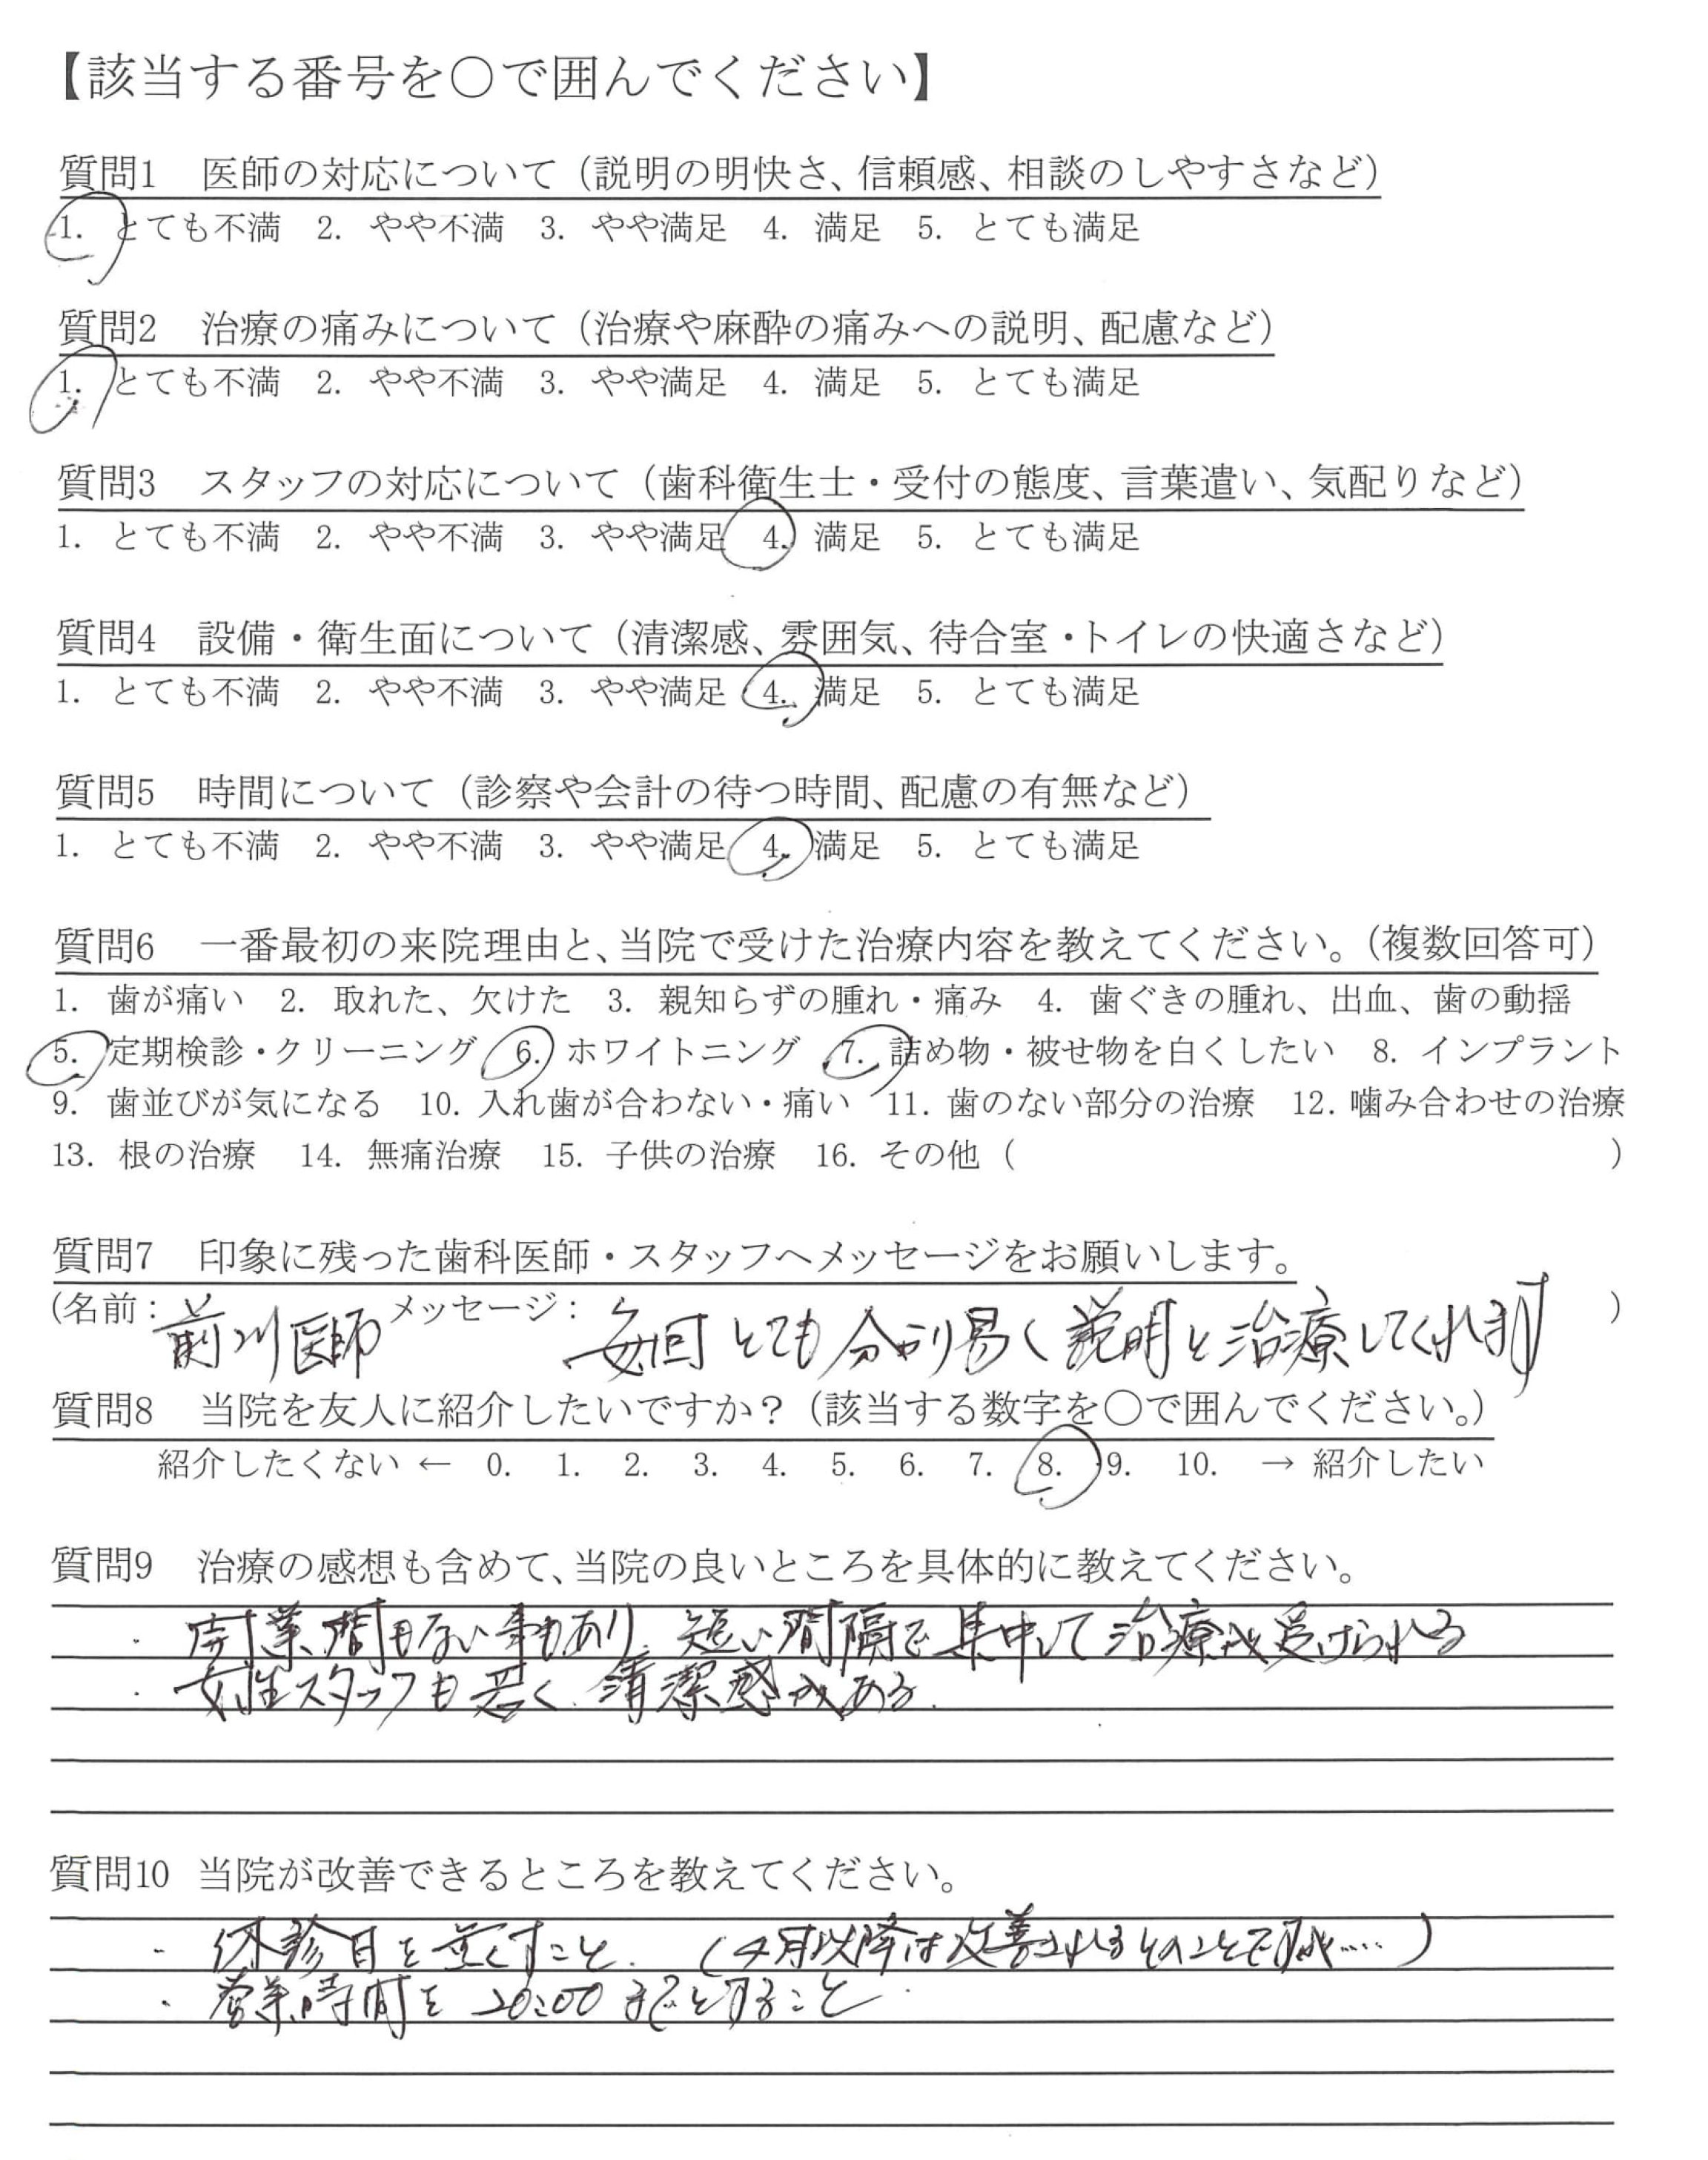 【該当する番号を○で囲んでください】
質問1 医師の対応について（説明の明快さ、信頼感、相談のしやすさなど）
1. とても不満 2. やや不満 3. やや満足 4. 満足 5. とても満足
質問2 治療の痛みについて（治療や麻酔の痛みへの説明、配慮など）
1. とても不満 2. やや不満 3. やや満足 4. 満足 5. とても満足
質問3 スタッフの対応について（歯科衛生士・受付の態度、言葉遣い、気配りなど）
1. とても不満 2. やや不満 3. やや満足 4. 満足 5. とても満足
質問4 設備・衛生面について（清潔感、雰囲気、待合室・トイレの快適さなど）
1. とても不満 2. やや不満 3. やや満足 4. 満足 5. とても満足
質問5 時間について（診察や会計の待つ時間、配慮の有無など）
1. とても不満 2. やや不満 3. やや満足 4. 満足 5. とても満足
質問6 一番最初の来院理由と、当院で受けた治療内容を教えてください。（複数回答可）
1. 歯が痛い 2. 取れた、欠けた 3. 親知らずの腫れ・痛み 4. 歯ぐきの腫れ、出血、歯の動揺
5. 定期検診・クリーニング 6. ホワイトニング 7. 詰め物・被せ物を白くしたい 8. インプラント
9. 歯並びが気になる 10. 入れ歯が合わない・痛い 11. 歯のない部分の治療 12. 噛み合わせの治療
13. 根の治療 14. 無痛治療 15. 子供の治療 16. その他（ ）
質問7 印象に残った歯科医師・スタッフへメッセージをお願いします。
(名前：前川医師 メッセージ：毎回とても分かり易く説明と治療してくれます）
質問8 当院を友人に紹介したいですか？（該当する数字を○で囲んでください。）
紹介したくない ← 0. 1. 2. 3. 4. 5. 6. 7. 8. 9. 10. → 紹介したい
質問9 治療の感想も含めて、当院の良いところを具体的に教えてください。
・開業間もない事もあり、短い間隔で集中して治療が受けられる
・女性スタッフも若く、清潔感がある.
質問10 当院が改善できるところを教えてください。
・休診日を無くすこと.（4月以降は改善されるとのことですが.....）
・営業時間を20:00までとすること.